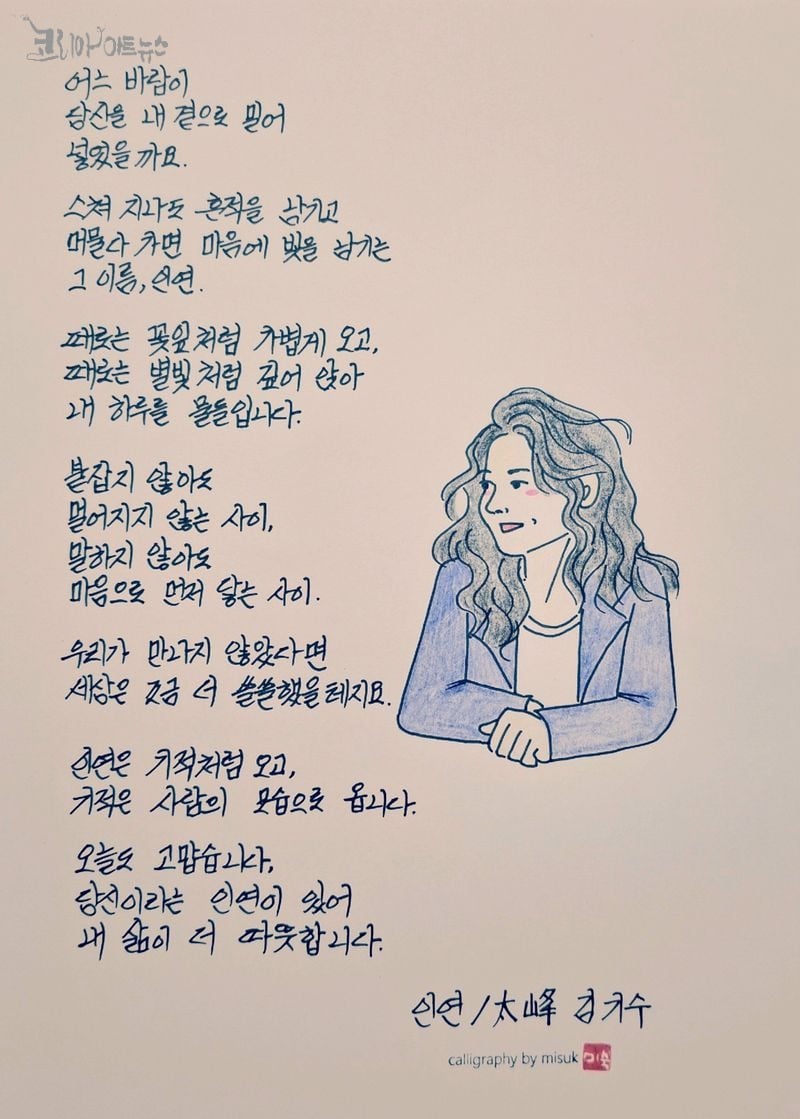 코리아아트뉴스
어느 바람이
당신을 내 곁으로 밀어
넣었을까요.
스쳐 지나도 흔적을 남기고
머물다 가면 마음에 빛을 남기는
그 이름, 인연.
때로는 꽃잎처럼 가볍게 오고,
때로는 별빛처럼 깊어 앉아
내 하루를 물들입니다.
붙잡지 않아도
멀어지지 않는 사이,
말하지 않아도
마음으로 먼저 닿는 사이.
우리가 만나지 않았다면
세상은 조금 더 쓸쓸했을테지요.
인연은 기적처럼 오고,
기적은 사람의 모습으로 옵니다.
오늘도 고맙습니다,
당신이라는 인연이 있어
내 삶이 더 따뜻합니다.
인연 / 太峰 김기수
calligraphy by misuk 미숙